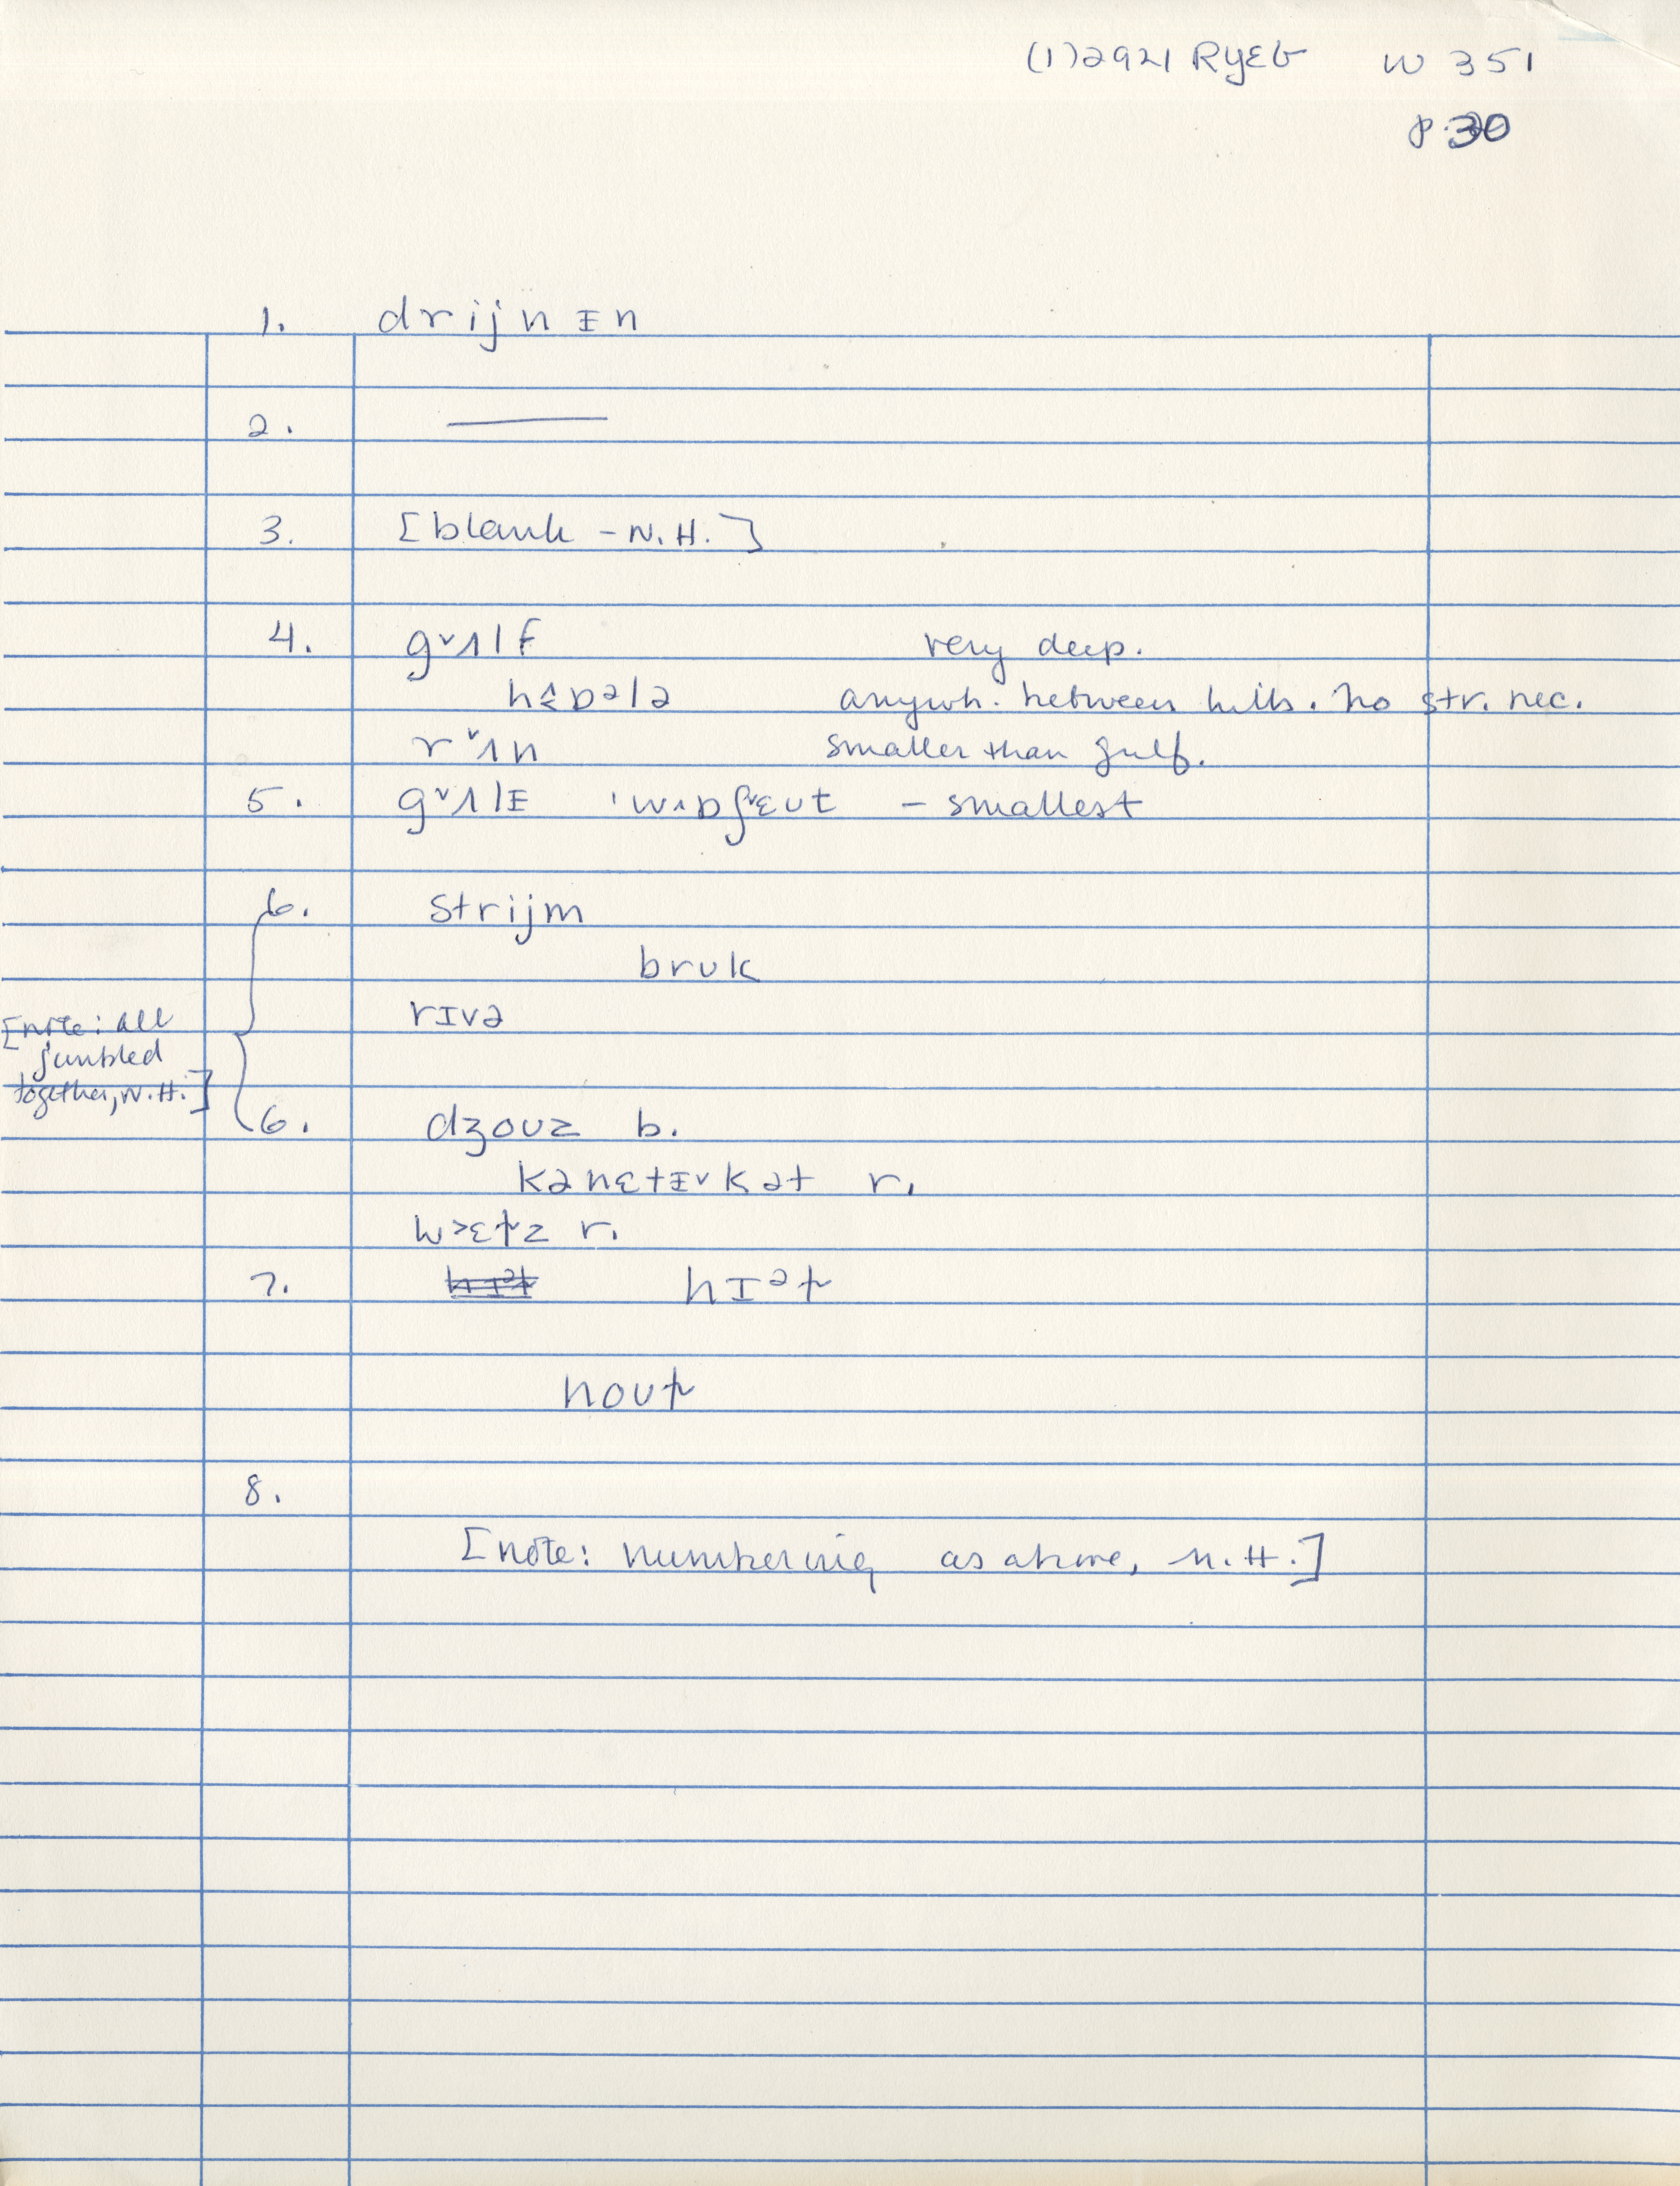 (1)2921 RyEG W 351
p.30
1. drijnᵻn
2. ——
3. [blank - N.H.]
4. gᵛʌlf very deep.
anywh. between hills. No str. nec.
rᵛʌn smaller than gulf.
5. gᵛʌlᵻ - smallest
6. strijm
brʊk
rɪvə
[note: all
jumbled
together, N.H.]
6. dʒoʊz b.
kənɛtᵻˇkət r.
r.
7. hɪᵊt̬
noʊt̬
8.
[note: numbering as above, N.H.]